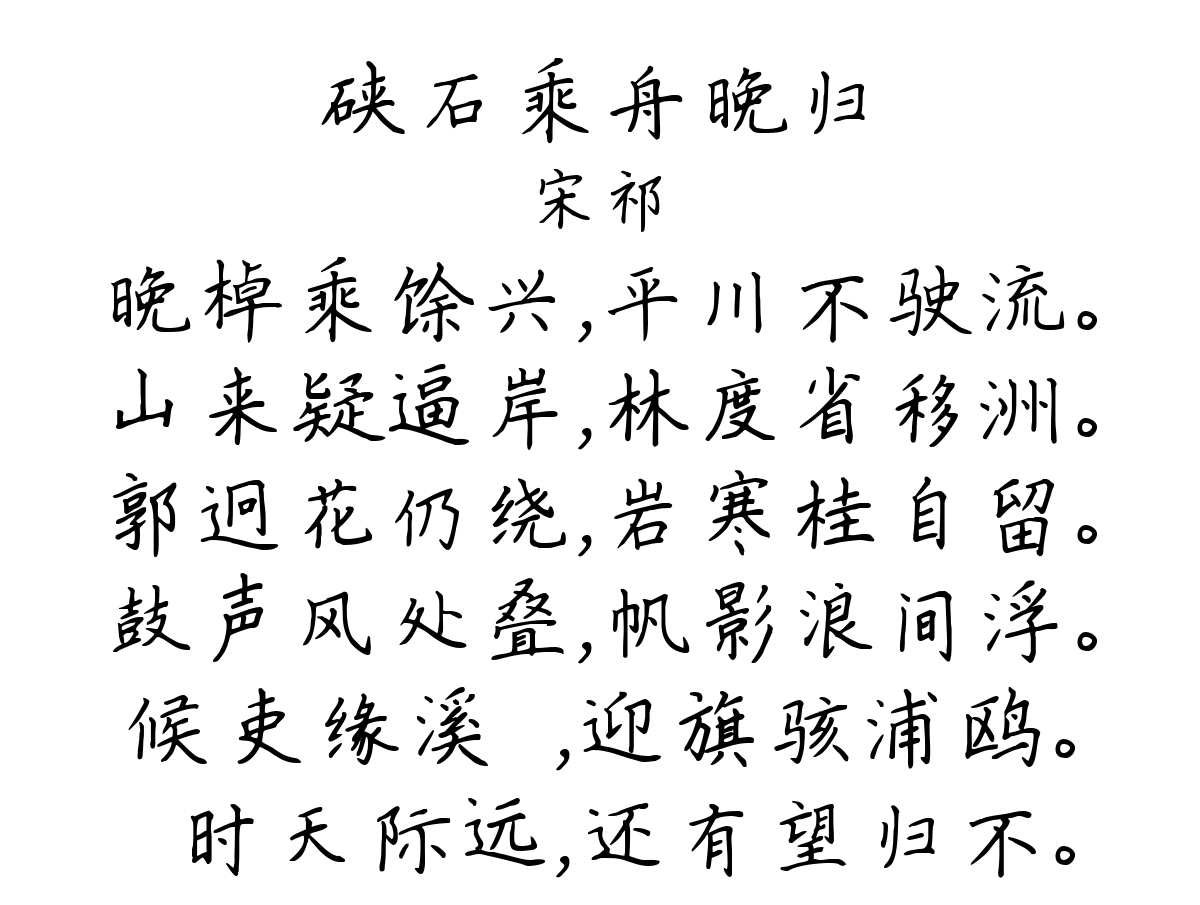 硖石乘舟晚归
宋祁
晚棹乘馀兴,平川不驶流。
山来疑逼岸,林度省移洲。
郭迥花仍绕,岩寒桂自留。
鼓声风处叠,帆影浪间浮。
候吏缘溪 ,迎旗骇浦鸥。
时天际远,还有望归不。